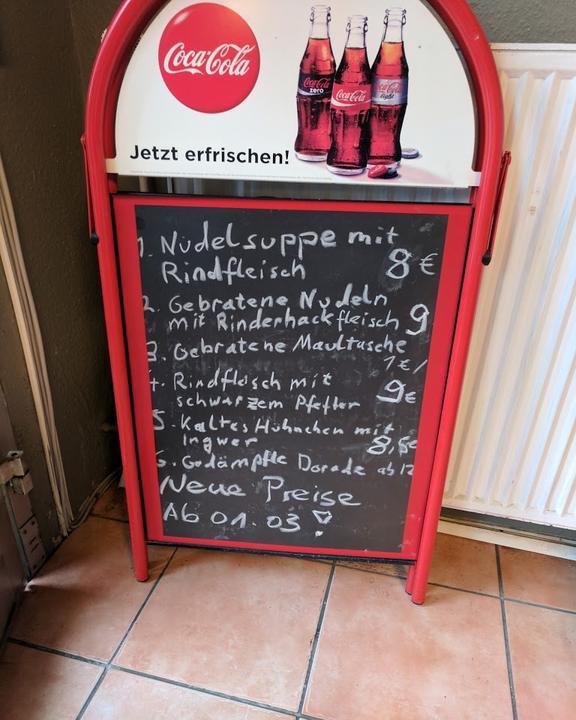 Coca-Cola
Coca-Cola
zero
Coca-Cola
Coca-Cola
light
Jetzt erfrischen!
1. Nudelsuppe mit
Rindfleisch 8 €
2. Gebratene Nudeln
mit Rinderhackfleisch 9
3. Gebratene Maultasche
1€/
4. Rindfleisch mit
schwarzem Pfeffer 9€
5. Kaltes Hühnchen mit
Ingwer 8,5€
6. Gedämpfte Dorade ab 12
Neue Preise
Ab 01.03